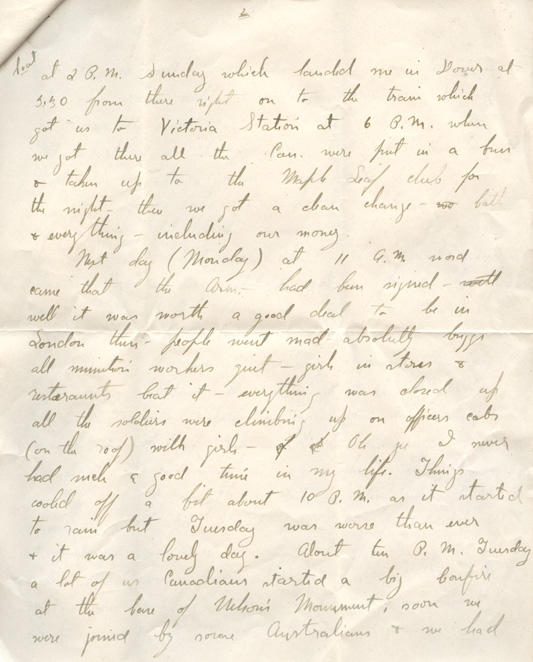 2
boat
at 2 P.M. Sunday which landed me in Dover at
3,30 from there right on to the train which
got us to Victoria Station at 6 P.M. when
we got there all the Can. were put in a bus
& taken up to the Maple Leaf club for
the night - then we got a clean change - bath
& everything - including our money.
Next day (Monday) at 11 A.M. word
came that the Arm. had been signed -
well it was worth a good deal to be in
London then - people went mad absolutely bugs
all munition workers quit - girls in stores &
restaraunts beat it - everything was closed up
all the soldiers were climbing up on officers cabs
(on the roof) with girls - Oh gee I never
had such a good time in my life. Things
cooled off a bit about 10 P.M. as it started
to rain but Tuesday was worse than ever
& it was a lovely day. About ten P.M. Tuesday
a lot of us Canadians started a big bonfire
at the base of Nelson's Monument, soon we
were joined by some Australians & we had